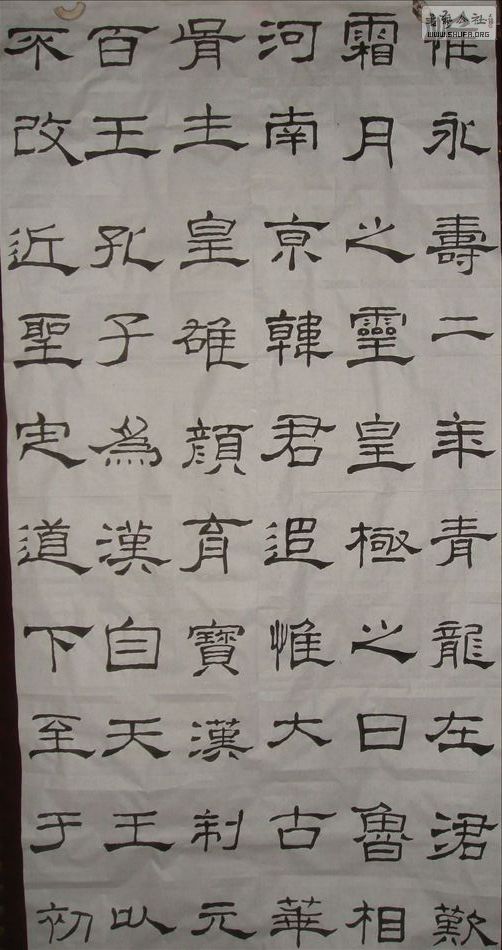 惟永壽二年青龍在涒歎
霜月之靈皇極之日魯相
河南京韓君追惟大古華
胥生皇雄顏育寶漢制元
百王孔子為漢自天王以
不改近聖定道下至于初
WWW.SHUFA.ORG